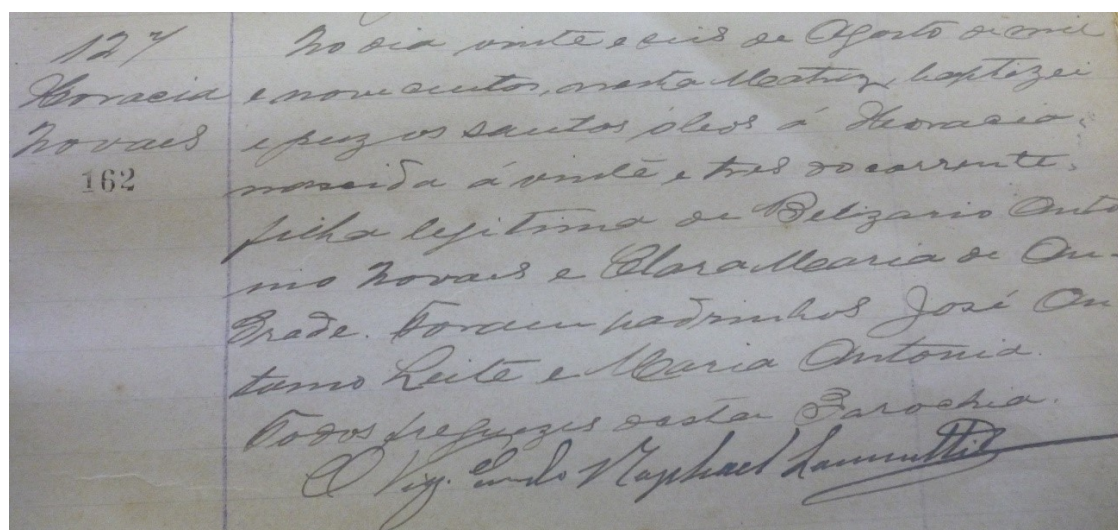 127
Horacia
Novaes
162
No dia vinte e seis de Agosto de mil
e nove centos, nesta Matriz, baptizei
e puz os santos óleos á Horacia,
nascida á vinte e tres do corrente,
filha legitima de Belizario Anto
nio Novaes e Clara Maria de An-
drade. Foram padrinhos José An
tonio Leite e Maria Antonia.
Todos freguezes desta Parochia.
O Vig. Raphael